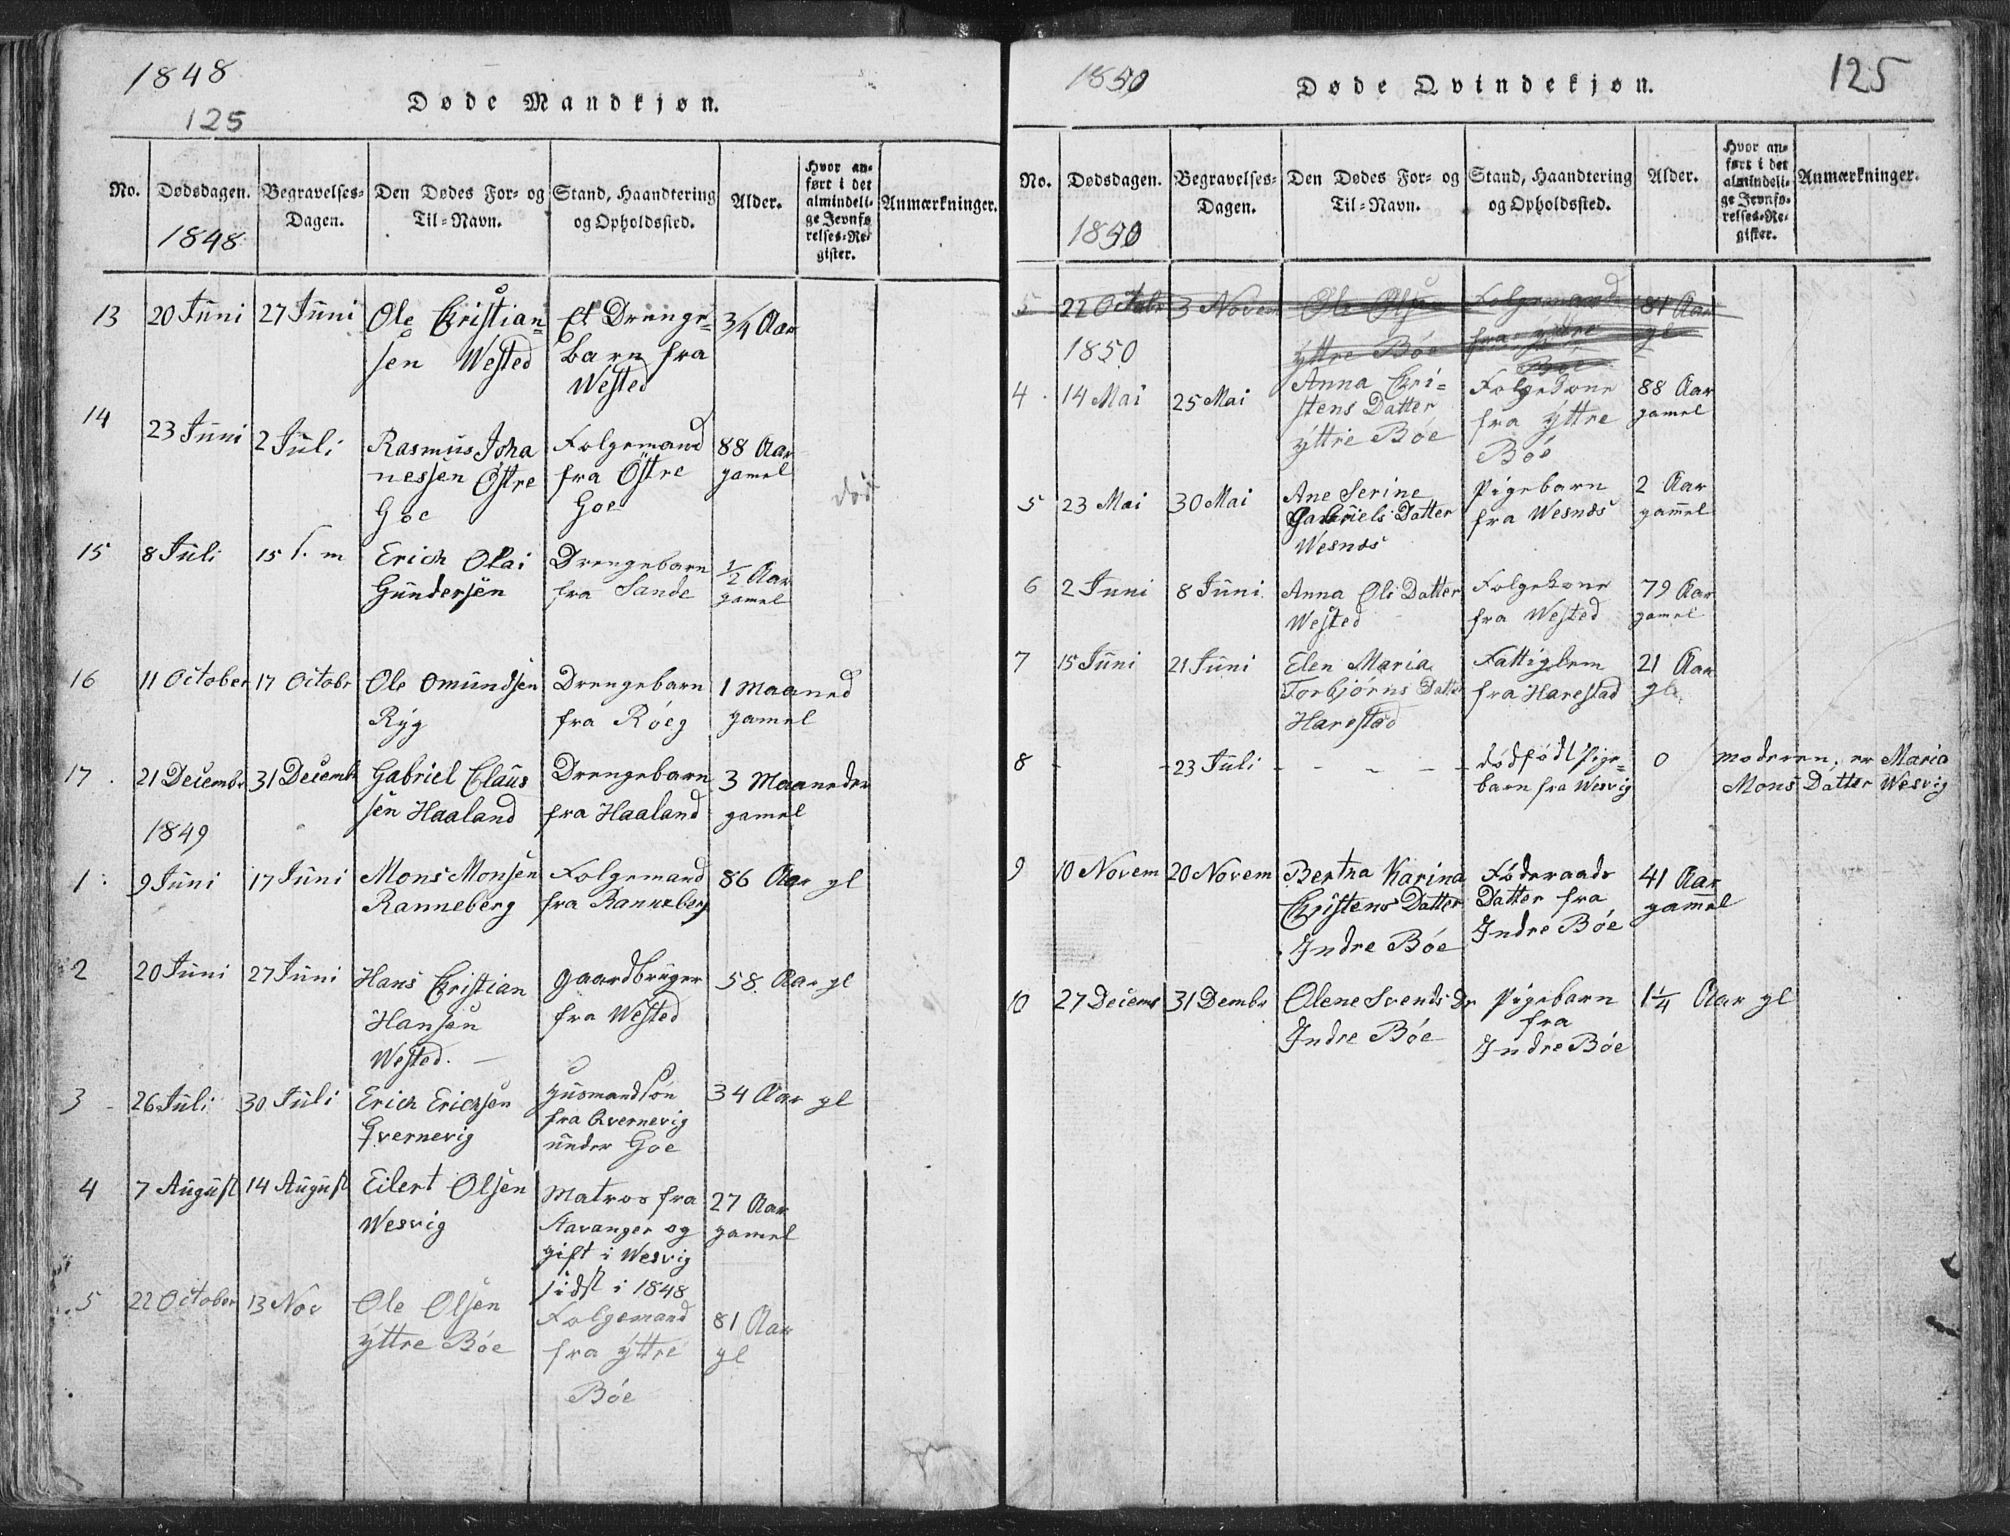 1848
125
Døde Mandkjøn.
No. Dødsdagen. Begravelses-Dagen. Den Dødes For- og Til-Navn. Stand, Haandtering og Opholdssted. Alder. Hvor anført i det almindelige Jevnførelses-Register. Anmærkninger.
1848
13 20 Juni 27 Juni Ole Christian= Et Drenge= 3/4 Aar
sen Wested barn fra
Wested
14 23 Juni 2 Juli Rasmus Joha Folgemand 88 Aar
nessen Östre fra Östre gamel
Goe Goe
15 8 Juli 15 s. m Erich Olai Drengebarn 1/2 Aar
Gundersen fra Sande gamel
16 11 October 17 Octobr Ole Omundsen Drengebarn 1 Maaned
Ryg fra Röeg gamel
17. 21 Decembr 31 Decemb Gabriel Claus Drengebarn 3 Maaneder
sen Haaland fra Haaland gamel
1849
1. 9 Juni 17 Juni Mons Monsen Folgemand 86 Aar gl
Ranneberg fra Ranneberg
2 20 Juni 27 Juni Hans Christian gaardbruger 58 Aar gl
Hansen fra Wested
Wested. —
3 26 Juli 30 Juli Erich Erichsen Husmandsön 34 Aar gl
Qvernevig fra Qvernevig
under Goe
4 7 August 14 August Eilert Olsen Matros fra 27 Aar
Wesvig Stavanger og gamel
gift i Wesvig
sidst i 1848
5 22 October 13 Nov Ole Olsen Folgemand 81 Aar
ÿttre Böe fra ÿttre gl
Böe
1850
Døde Qvindekjøn.
125
No. Dødsdagen. Begravelses-Dagen. Den Dødes For- og Til-Navn. Stand, Haandtering og Opholdssted. Alder. Hvor anført i det almindelige Jevnførelses-Register. Anmærkninger.
1850
5 22 Octobr 3 Novem Ole Olsen Folgemand 81 Aar
ÿttre Böe fra ÿttre gl
Böe
1850
4. 14 Mai 25 Mai Anna Chri= Folgekone 88 Aar
stens Datter fra ÿttre gamel
ÿttre Böe Böe
5 23 Mai 30 Mai Ane Serine Pigebarn 2 Aar
Gabriels Datter fra Wesnæs gammel
Wesnæs
6 2 Juni 8 Juni Anna Ols Datter Folgekone 79 Aar
Wested fra Wested gamel
7 15 Juni 21 Juni Elen Maria Fattiglem 21 Aar
Torbjörns Datter fra Harestad gl
Harestad
8 - - 23 Juli - - - - dödfödt Pige= 0 moderen, er Maria
barn fra Wesvig Mons Datter Wesvig
9 10 Novem 20 Novem Bertha Karina Föderaads 41 Aar
Christens Datter Datter fra gammel
Indre Böe Indre Böe
10 27 Decemr 31 Dembr Olene Svends Dr Pigebarn 1 1/4 Aar gl
Indre Böe fra
Indre Böe